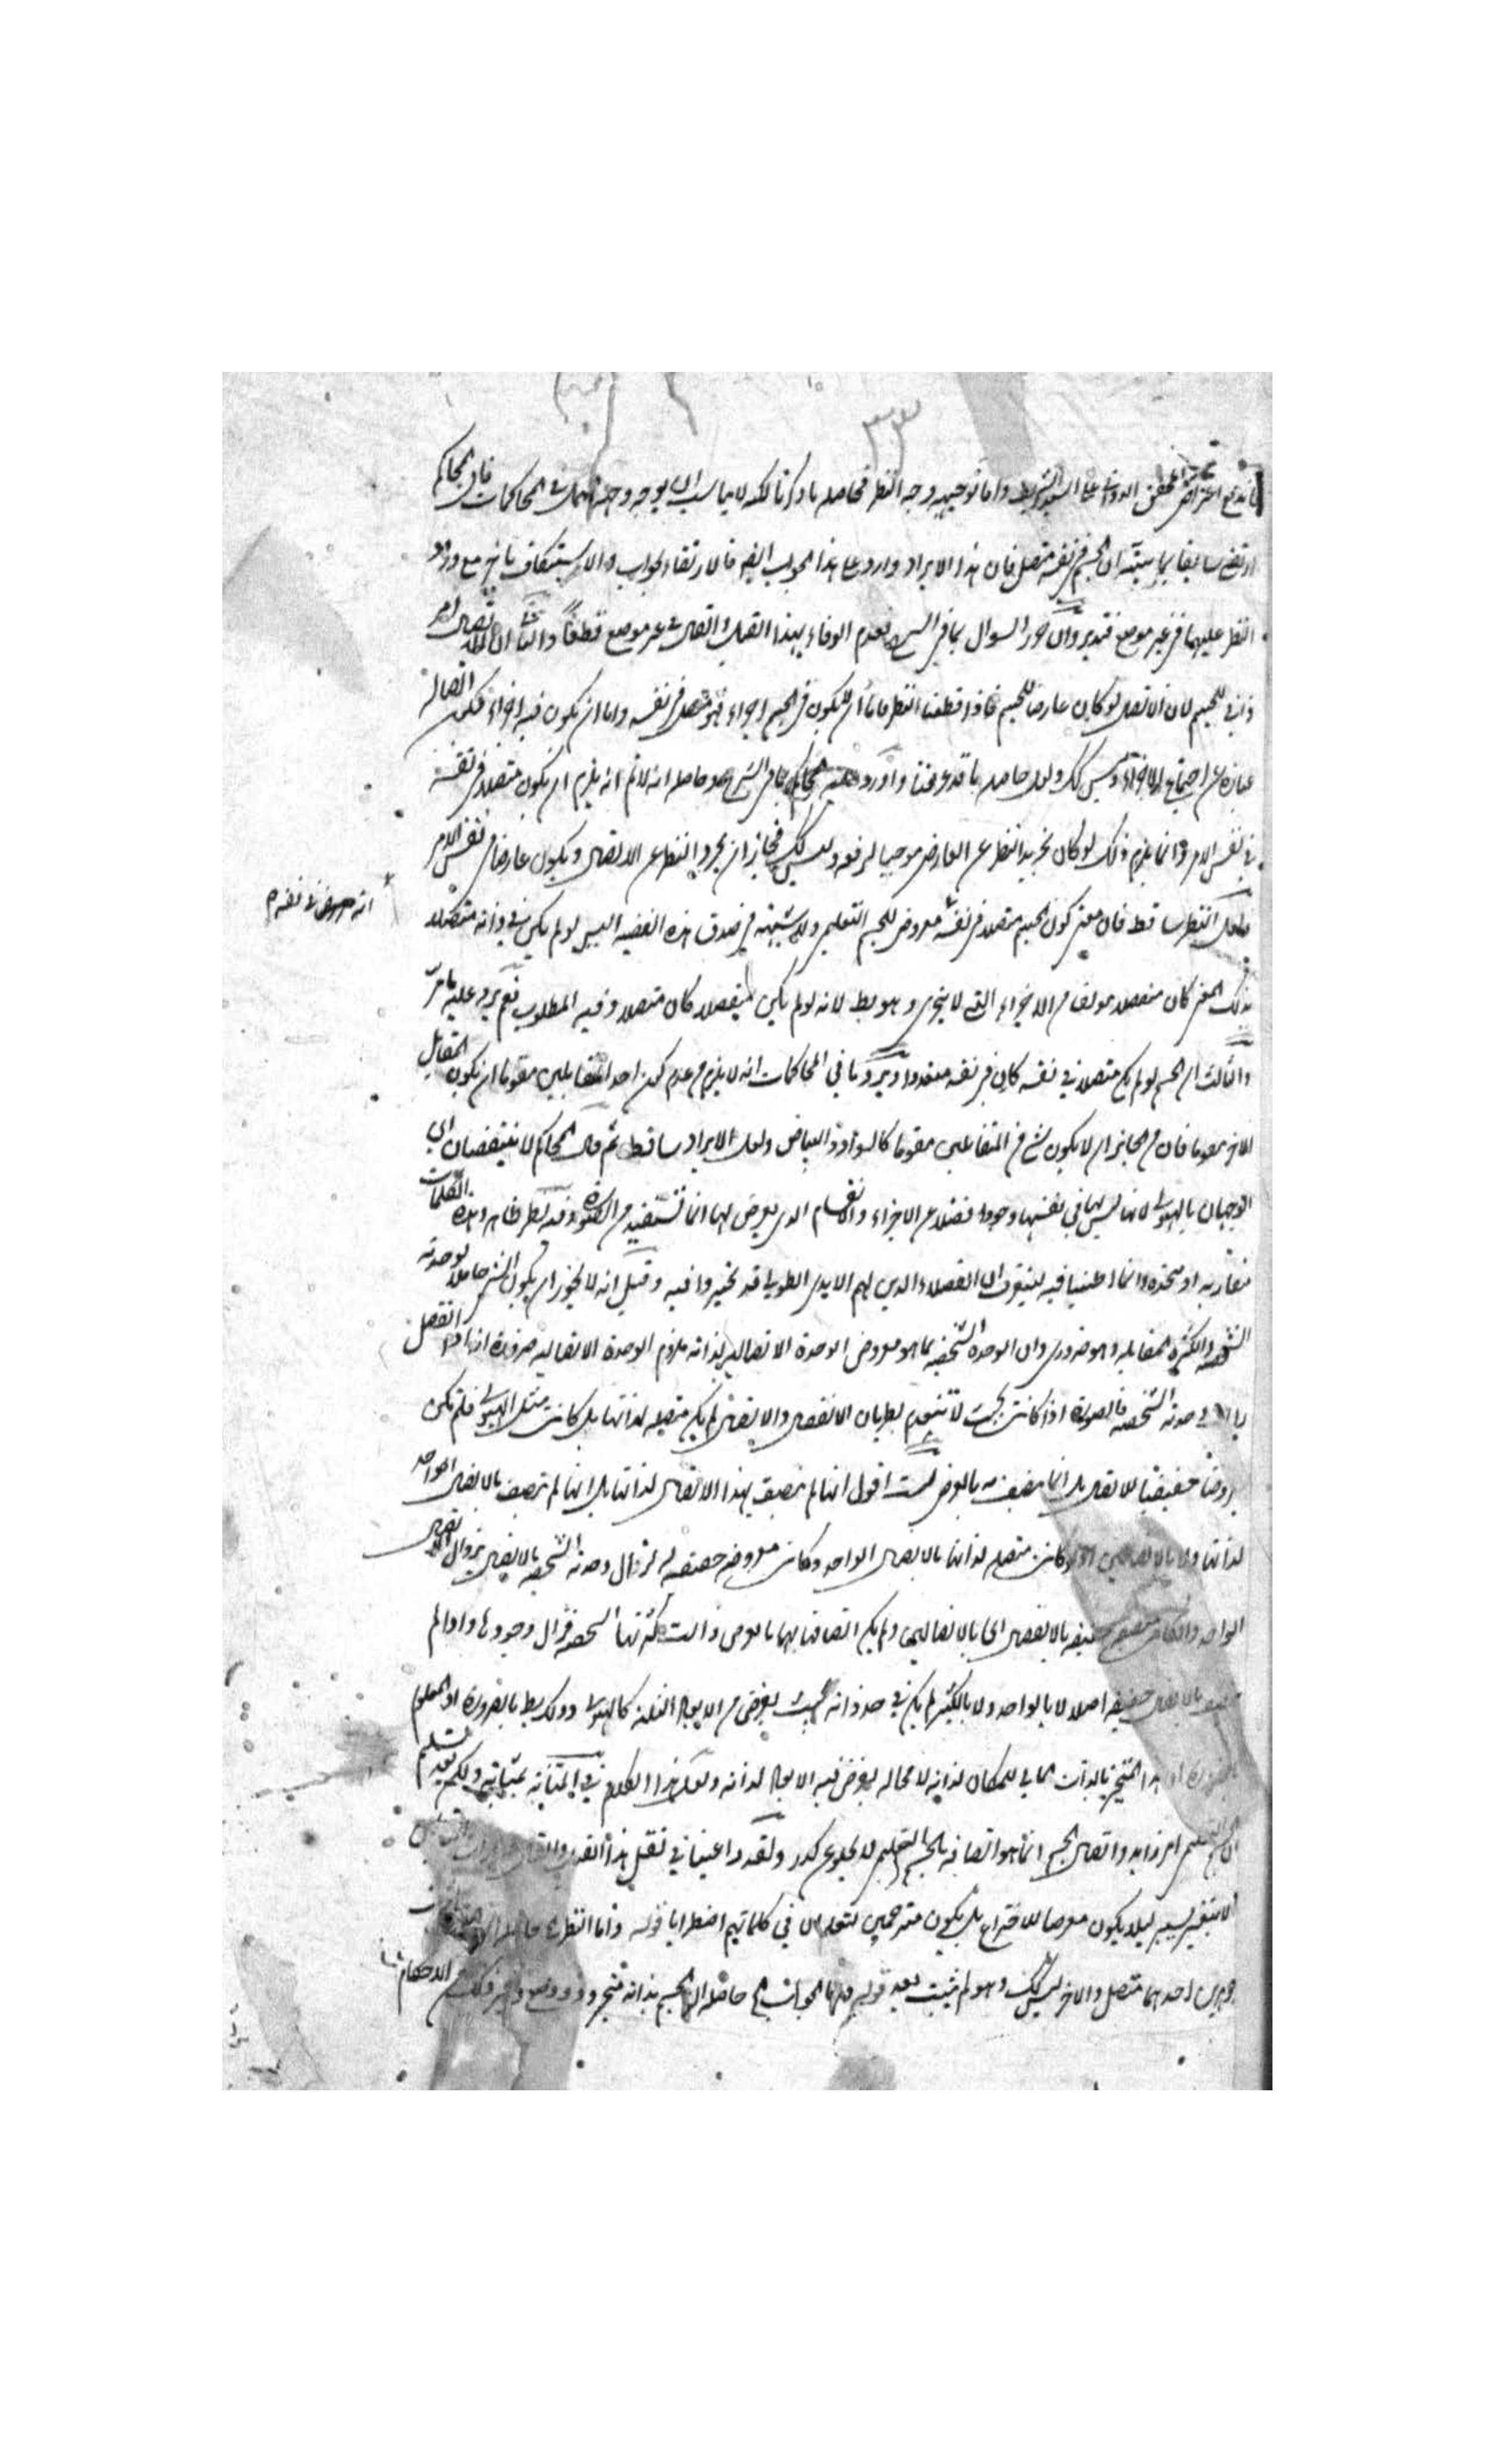 ٣٣
اعتراض المحقق الدواني على السيد الشريف واما توجيهه وجه النظر فحاصله ما ذكرنا لكنه لا يناسب ان يوجه في المحاكمات فان المحاكم
ارتضى سابقا بما بينه ان الجسم في نفسه متصل فان هذا الايراد وارد على هذا الجواب ايضا فالارتقاء لجواب والاستنكاف باخر مع ورود
النظر عليهما في غير موضع فتدبر وان حرر السوال بما في الشرح فعدم الوفاء بهذا القيل والقال في غير موضع قطعا والثاني ان الاتصال امر
ذاتي للجسم لان الاتصال لو كان عارضا للجسم فاذا قطعنا النظر فاما ان لا يكون في الجسم اجزاء فهو متصل في نفسه واما ان يكون فيه اجزاء فيكون اتصاله
عبارة عن اجتماع الاجزاء وليس كك ولعل حاصله ما قد عرفت واورد عليه المحاكم بما في الشرح وحاصله انه لا نم انه يلزم ان يكون متصلا في نفسه
في نفس الامر وانما يلزم ذلك لو كان تجريد النظر عن العارض موجبا لرفعه وليس كك فجاز ان يجرد النظر عن الاتصال ويكون عارضا في نفس الامر
ولعل النظر ساقط فان معنى كون الجسم متصلا في نفسه معروض للجسم التعليمي ولا شبهة في صدق هذه القضية الجسم لو لم يكن في ذاته متصلا
انه معروض في نفسه
بذلك المعنى كان منفصلا مولفا من الاجزاء التي لا يتجزى وهو بط لانه لو لم يكن منفصلا كان متصلا وفيه المطلوب نعم يرد عليه ما مر
والثالث ان الجسم لو لم يكن متصلا في نفسه كان في نفسه متعددا ويرد ما في المحاكمات انه لا يلزم من عدم كون احد المتقابلين مقوما ان يكون المقابل
الاخر مقوما فان من الجائز ان لا يكون شئ من المتقابلين مقوما كالسواد والبياض ولعل الايراد ساقط ثم قال المحاكم لا ينتقضان اي
الوجهان بالهيولى لانها ليس لها في نفسها وجود فضلا عن الاجزاء والانقسام الذي يعرض لها انما تستفيد من الصورة وفيه نظر ظاهر وهذه الكلمات
متقاربة او متحدة وانما اطنبنا فيه ليتقوى ان الفضلاء الذين لهم الايدي الطولى قد تحيروا فيه وقيل انه لا يجوز ان يكون الشئ حاملا لوحدته
الشخصية والكثرة المقابلة وهو ضروري وان الوحدة الشخصية بما هو معروض الوحدة الاتصالية لذاته ملزوم الوحدة الاتصالية ضرورة اذا انفصل
وحدته الشخصية فالصورة اذا كانت بحيث لا تنعدم بطريان الانفصال والاتصال لم يكن متصلة لذاتها بل كانت مثل الهيولى فلم تكن
معروضا حقيقيا للاتصال بل انما يتصف به بالعرض لست اقول انها لم يتصف بهذا الاتصال لذاتها بل انها لم تتصف بالاتصال الواحد
لذاتها ولا بالاتصالين اذ لو كانت متصلة لذاتها بالاتصال الواحد وكانت معروضة حقيقية له لزال وحدته الشخصية بالانفصال بزوال الاتصال
الواحد بالانفصال الى الاتصالين ولم يكن اتصافها بهما بالعرض زالت كثرتها الشخصية فزال وجودها واذا لم
بالاتصال حقيقة اصلا لا بالواحد ولا بالكثير لم يكن في حد ذاته بحيث يفرض من الابعاد الثلثة كالهيولى وذلك بط بالضرورة اذ المعلوم
بالضرورة ان هذا المتحيز بالذات المالي للمكان لذاته لا محالة يفرض فيه الابعاد لذاته ولعل هذا الكلام في المتانة بمثابة ولكن بعد تسليم
ان الجسم التعليمي امر زايد واتصال الجسم انما هو اتصافه بالجسم التعليمي لا يخلو عن كدر ولقد راعينا في نقل هذا القدر
الا بتغيير يسير ليلا يكون معرضا للاختراع بل يكون مترجمين لتعلم ان في كلماتهم اضطرابا قوله واما النظر
جوهرين احدهما متصل والاخر ليس كك وهو لم يثبت بعد قوله فهذا الجواب الخ حاصله ان الجسم بذاته متحيز وذو وضع وغير ذلك من الاحكام